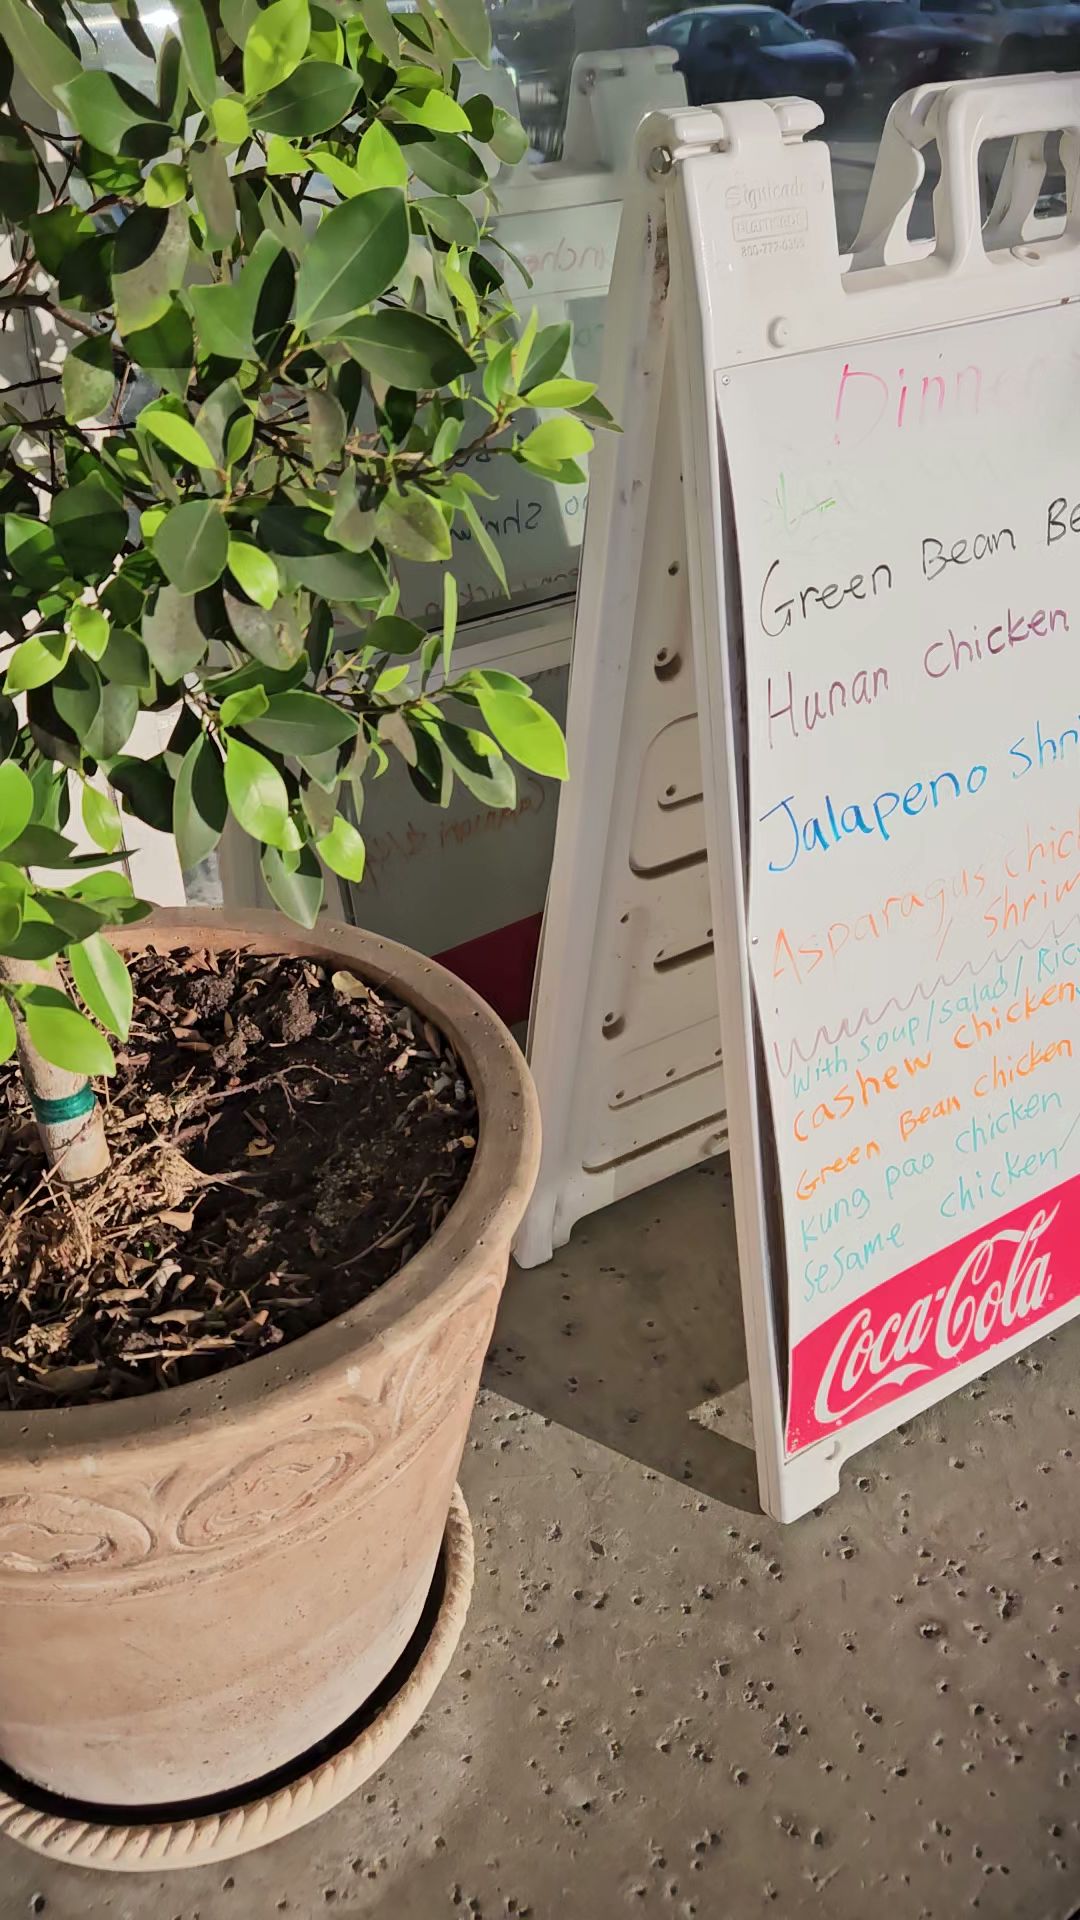 Signicade
PLASTICADE
800-772-0355
Dinner
Green Bean Be
Hunan Chicken
Jalapeno Shri
Asparagus Chic
/ Shrim
With Soup/Salad/Ric
Cashew Chicken
Green Bean Chicken
Kung pao Chicken
Sesame Chicken
Coca-Cola